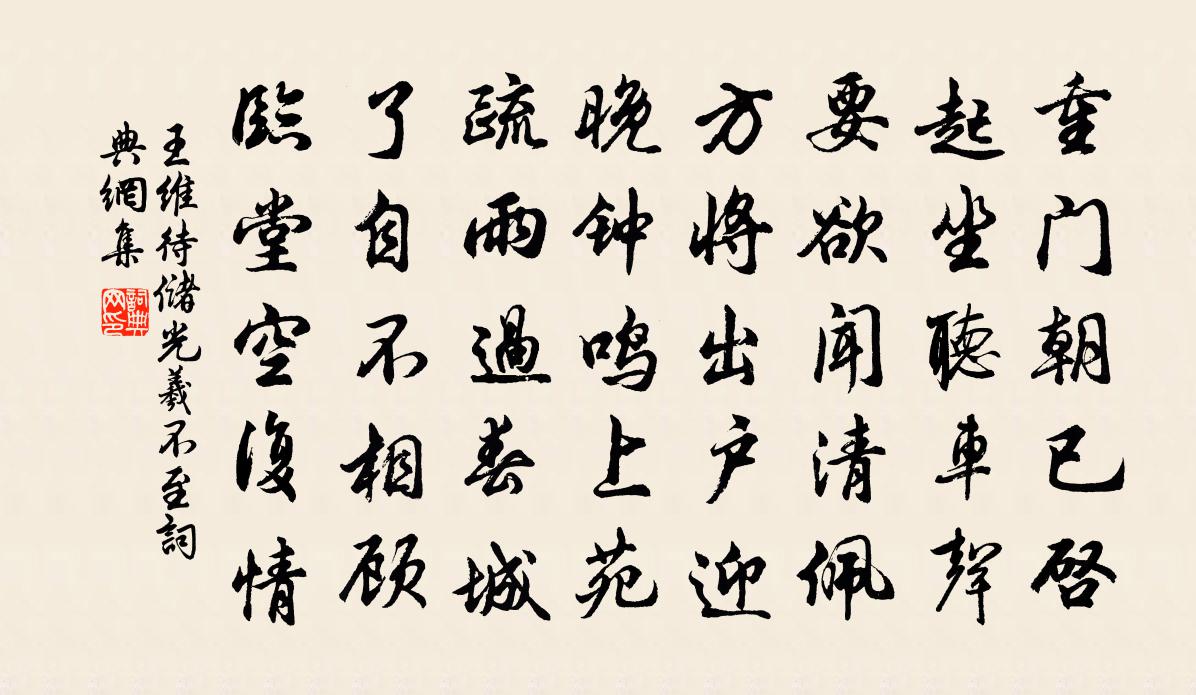 重门朝已启
起坐聽車聲
要欲闻清佩
方将出户迎
晚钟鸣上苑
疏雨過春城
了自不相顾
臨堂空復情
王维待儲光羲不至詞
典網集
詞典
网印